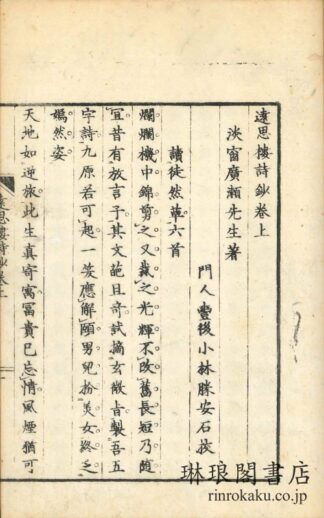 遠思樓詩鈔卷上
淡窗廣瀨先生著
門人豐後小林勝安石校
讀徒然草六首
爛爛機中錦剪之又裁之光輝不改舊長短乃隨
宜昔有放言子其文葩且奇試摘玄微旨製吾五
字詩九原若可起一笑應解頤男兒扮美女終乏
嫣然姿
天地如逆旅此生真寄寓富貴已忘情風煙猶可
遠思樓詩鈔卷上
琳琅閣書店
rinrokaku.co.jp